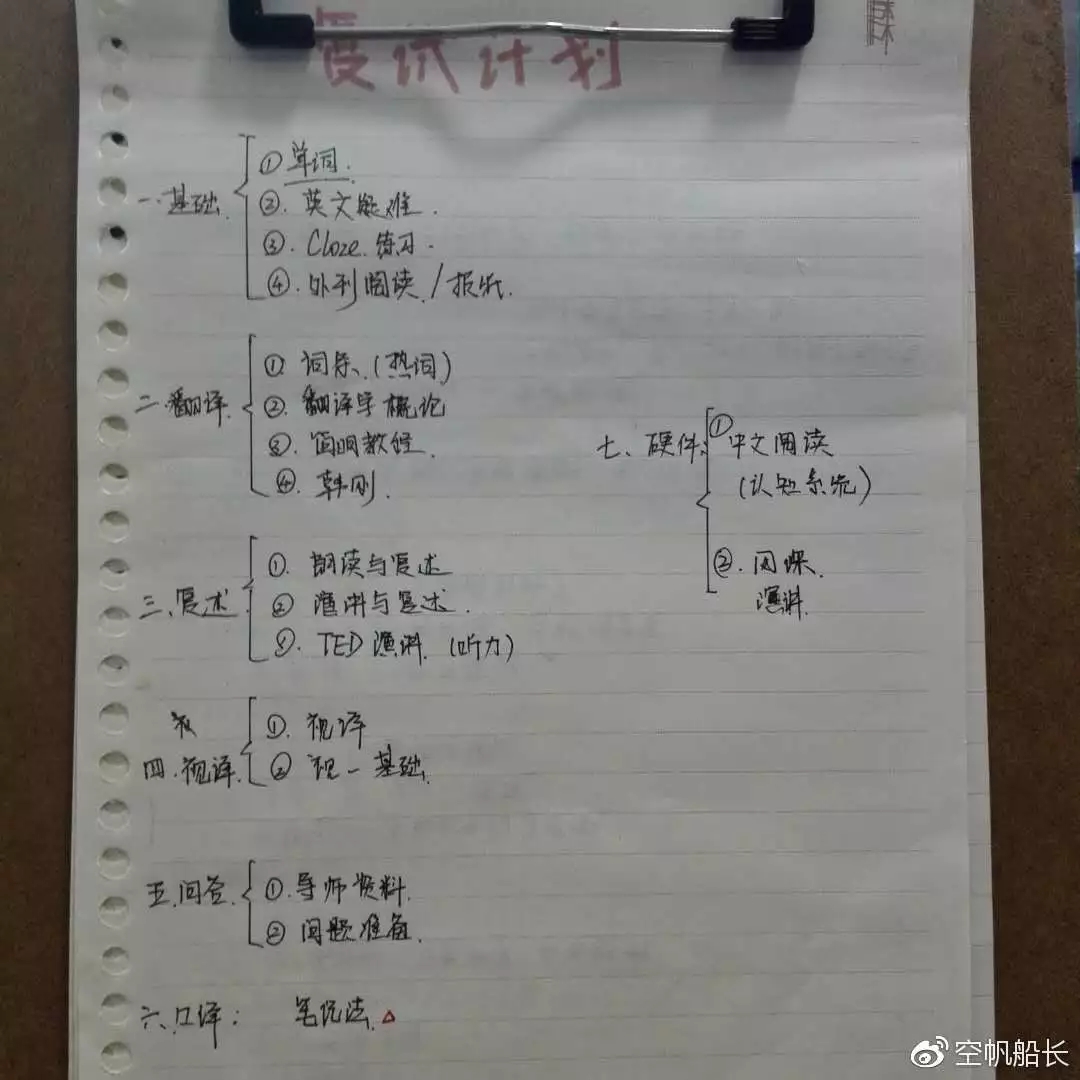 复试计划
一.基础
① 单词.
②. 英文疑难.
③. Cloze 练习.
④. 外刊阅读/报纸.
二.翻译.
①. 词条.(热词)
②. 翻译学概论
③. 简明教程.
④. 韩刚.
三、复述
①. 朗读与复述
② 演讲与复述.
③. TED 演讲.(听力)
四.视译.
①. 视译
② 视一基础.
五.问答.
①.导师资料.
② 问题准备.
六、口译: 笔记法.
七、硬件:
① 中文阅读
(认知系统)
②. 网课.
演讲.
空帆船长